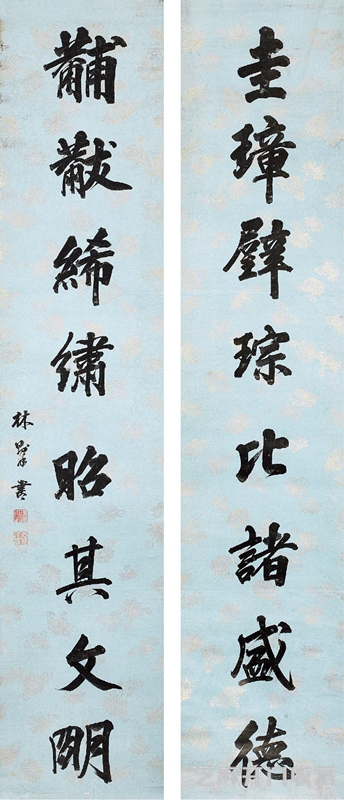 圭璋璧琮比諸盛德
黼黻絺繡昭其文明
林 書